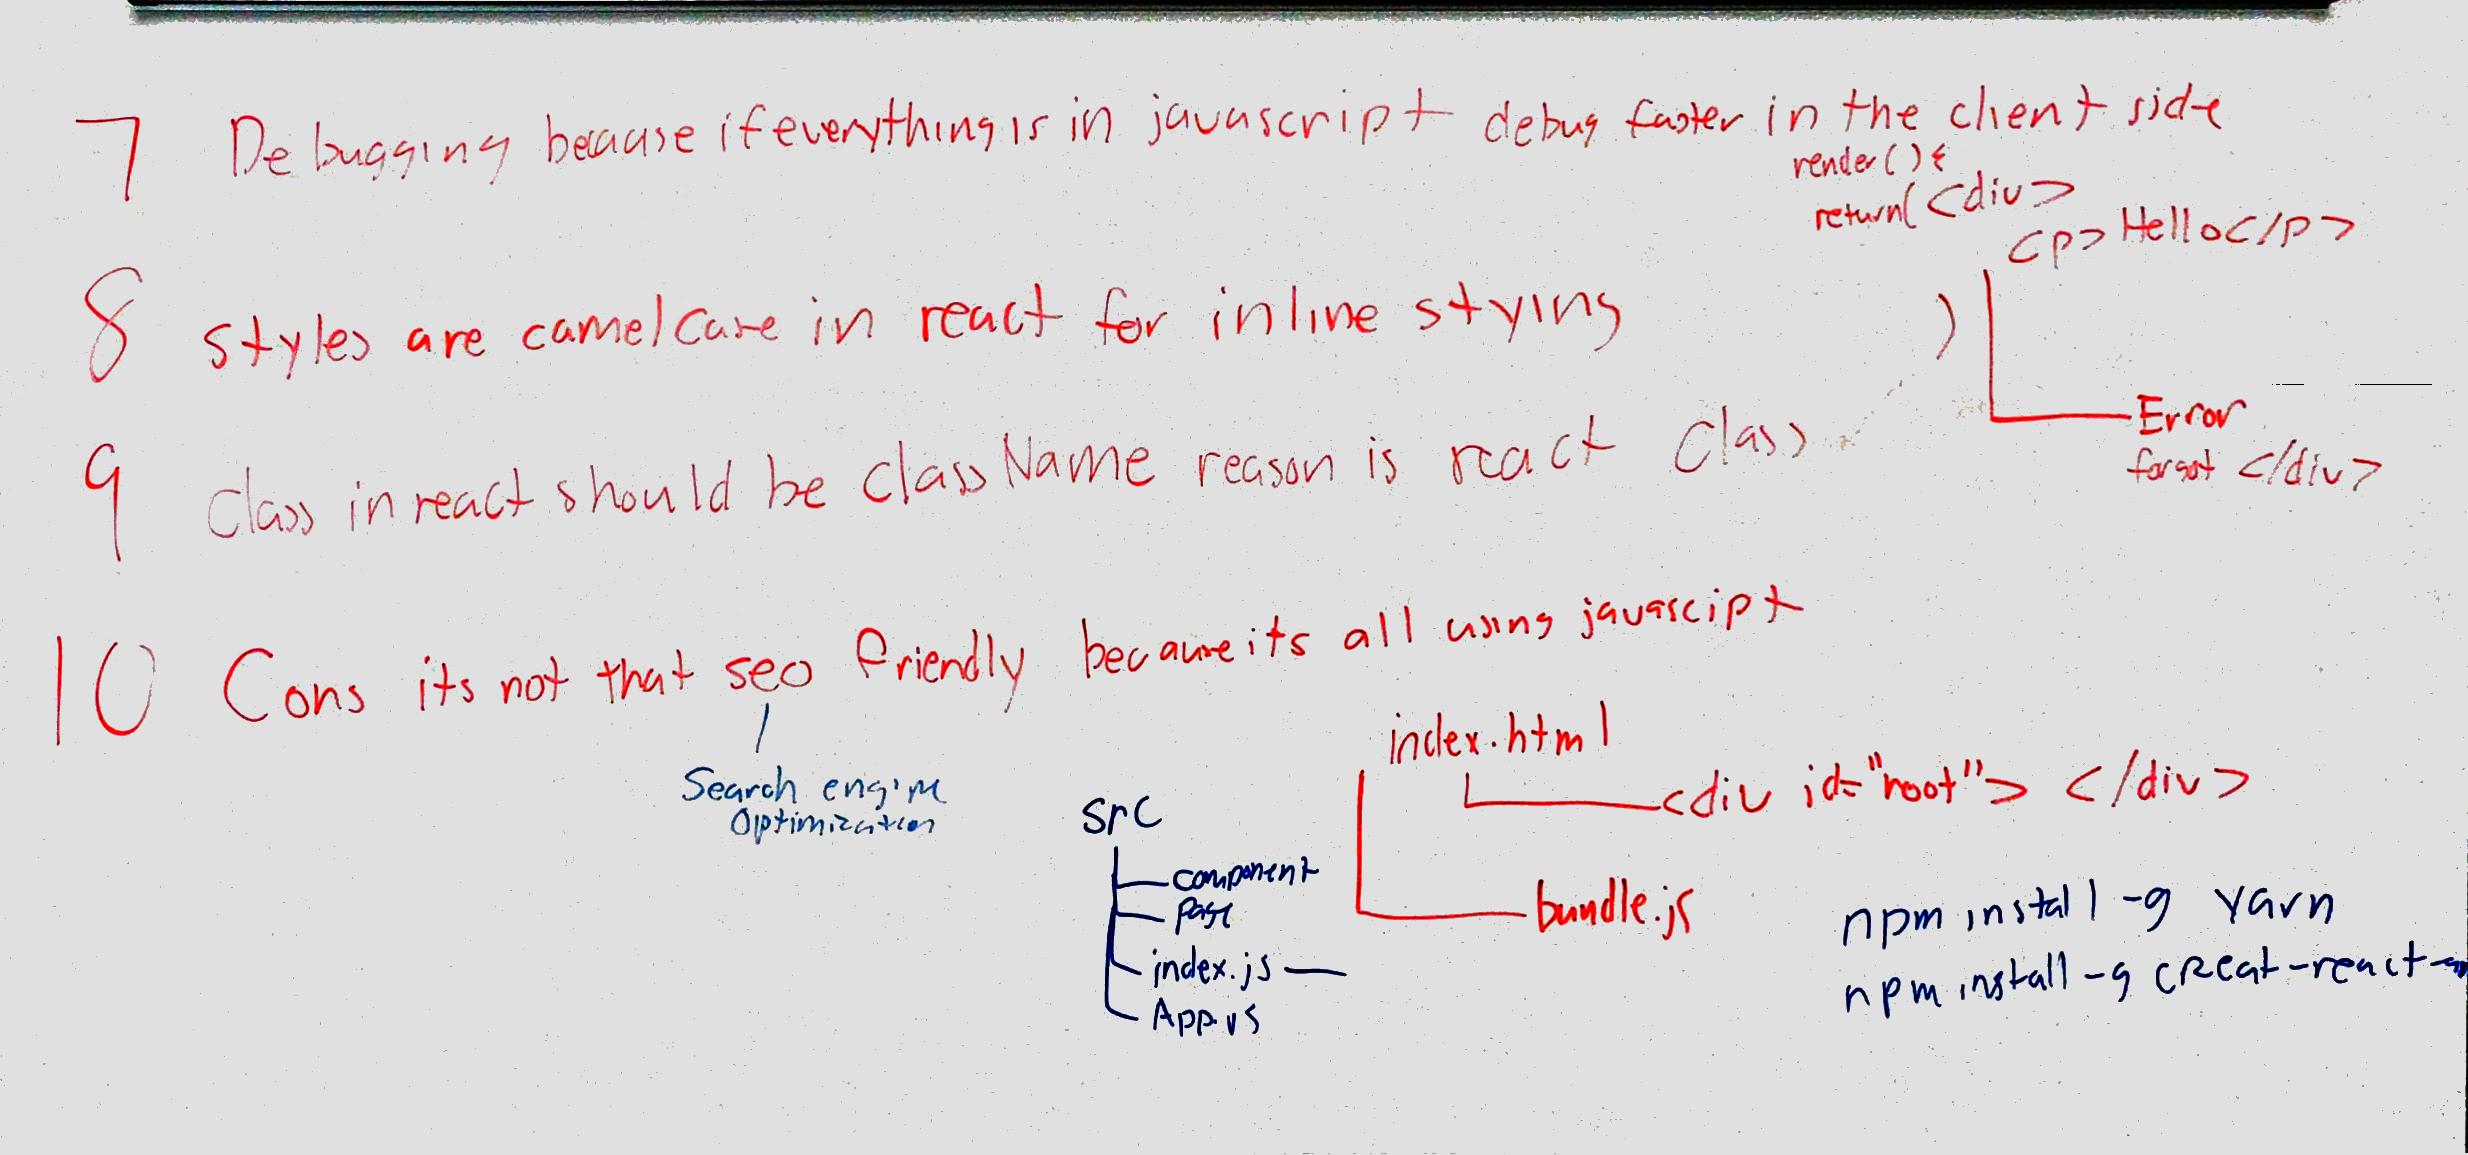 7 Debugging because if everything is in javascript debug faster in the client side
render(){
return( <div>
<p> Hello</p>
)
Error
forgot </div>
8 styles are camelCase in react for inline stying
9 class in react should be className reason is react class
10 Cons its not that seo friendly because its all using javascipt
Search engine
Optimization
index.html
<div id="root"> </div>
bundle.js
src
component
page
index.js
App.js
npm install -g yarn
npm install -g creat-react-